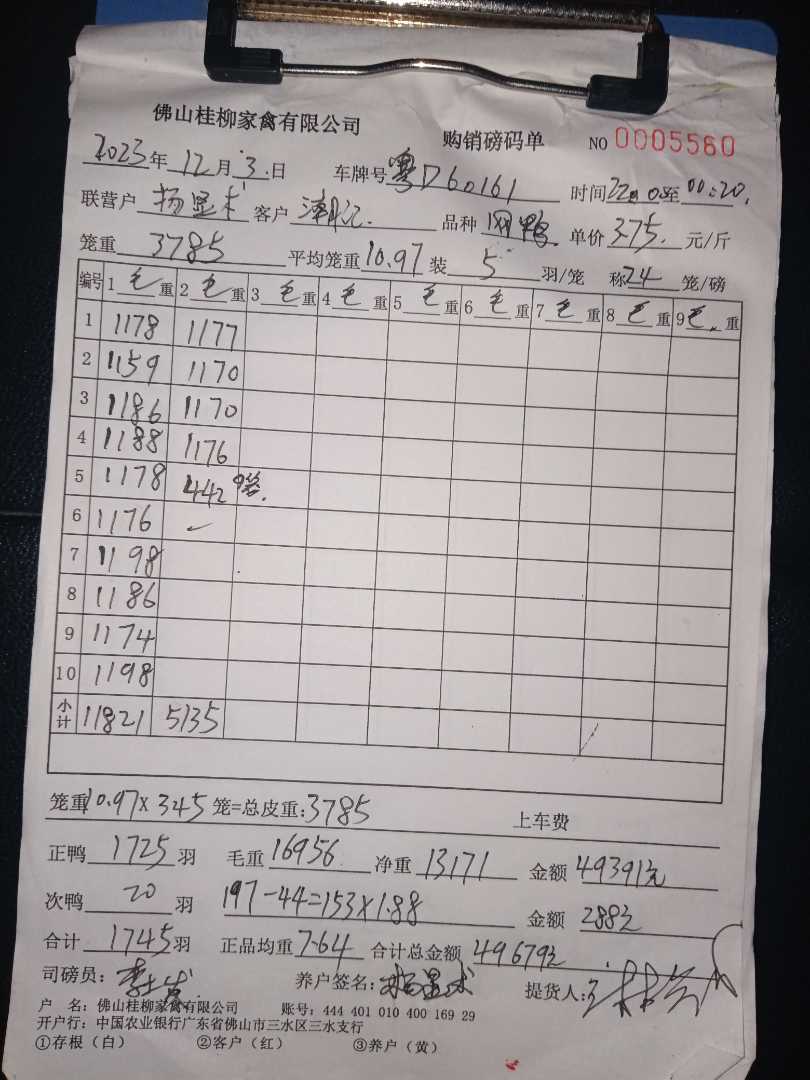 佛山桂柳家禽有限公司 购销磅码单 NO 0005560
2023年12月3日 车牌号粤D60161 时间22:0至00:20
联营户 杨显术 客户 品种 网鸭 单价3.75元/斤
笼重 3785 平均笼重10.97装 5 羽/笼 称24笼/磅
编号 1毛重 2毛重 3毛重 4毛重 5毛重 6毛重 7毛重 8毛重 9毛重
1 1178 1177
2 1159 1170
3 1186 1170
4 1188 1176
5 1178 442 9笼
6 1176
7 1198
8 1186
9 1174
10 1198
小计 11821 5135
笼重10.97X345笼=总皮重:3785 上车费
正鸭1725羽 毛重16956 净重13171 金额49391元
次鸭 20 羽 197-44=153X1.88 金额288元
合计1745羽 正品均重7.64 合计总金额49679元
司磅员: 养户签名:杨显术 提货人:
户 名:佛山桂柳家禽有限公司 账号:444 401 010 400 169 29
开户行:中国农业银行广东省佛山市三水区三水支行
①存根(白) ②客户(红) ③养户(黄)